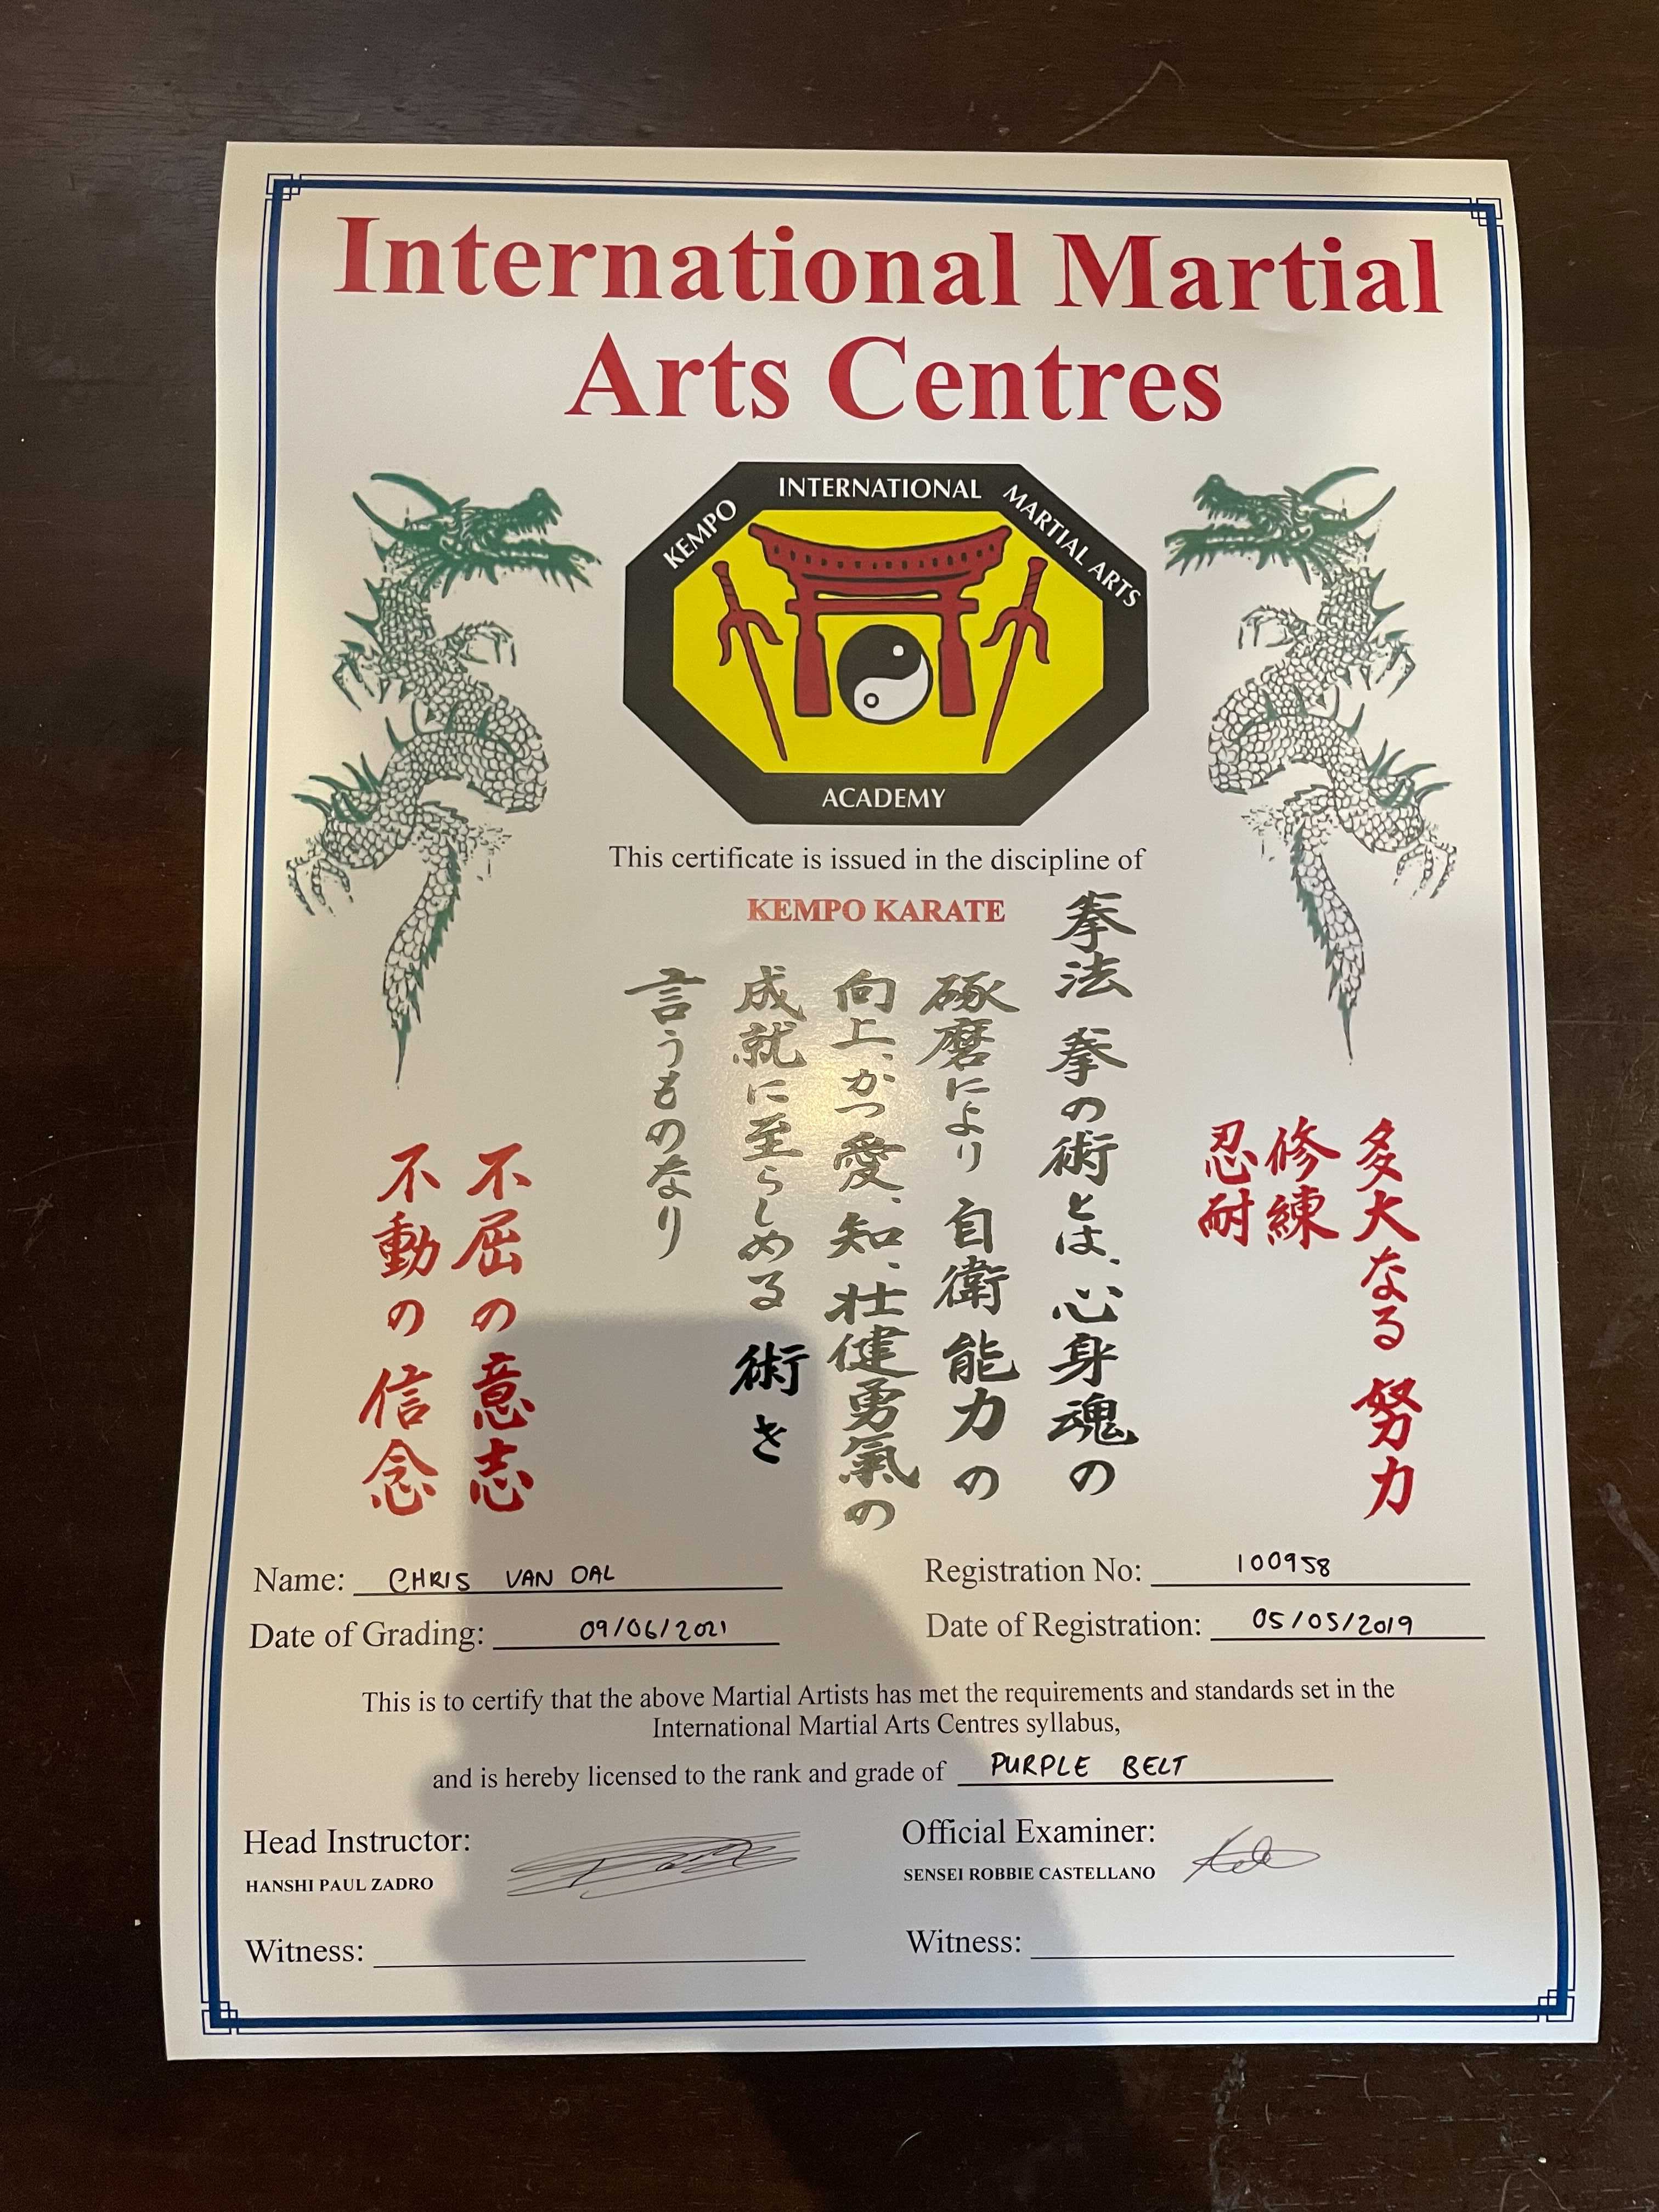 International Martial
Arts Centres
KEMPO INTERNATIONAL MARTIAL ARTS
ACADEMY
This certificate is issued in the discipline of
KEMPO KARATE
多大なる 努力
修練
忍耐
拳法 拳の術とは、心身魂の
琢磨により 自衛能力の
向上、かつ愛、知、壮健勇氣の
成就に至らしめる 術き
言うものなり
不屈の意志
不動の信念
Name: CHRIS VAN DAL
Registration No: 100958
Date of Grading: 09/06/2021
Date of Registration: 05/05/2019
This is to certify that the above Martial Artists has met the requirements and standards set in the
International Martial Arts Centres syllabus,
and is hereby licensed to the rank and grade of PURPLE BELT
Head Instructor:
HANSHI PAUL ZADRO
Official Examiner:
SENSEI ROBBIE CASTELLANO
Witness:
Witness: